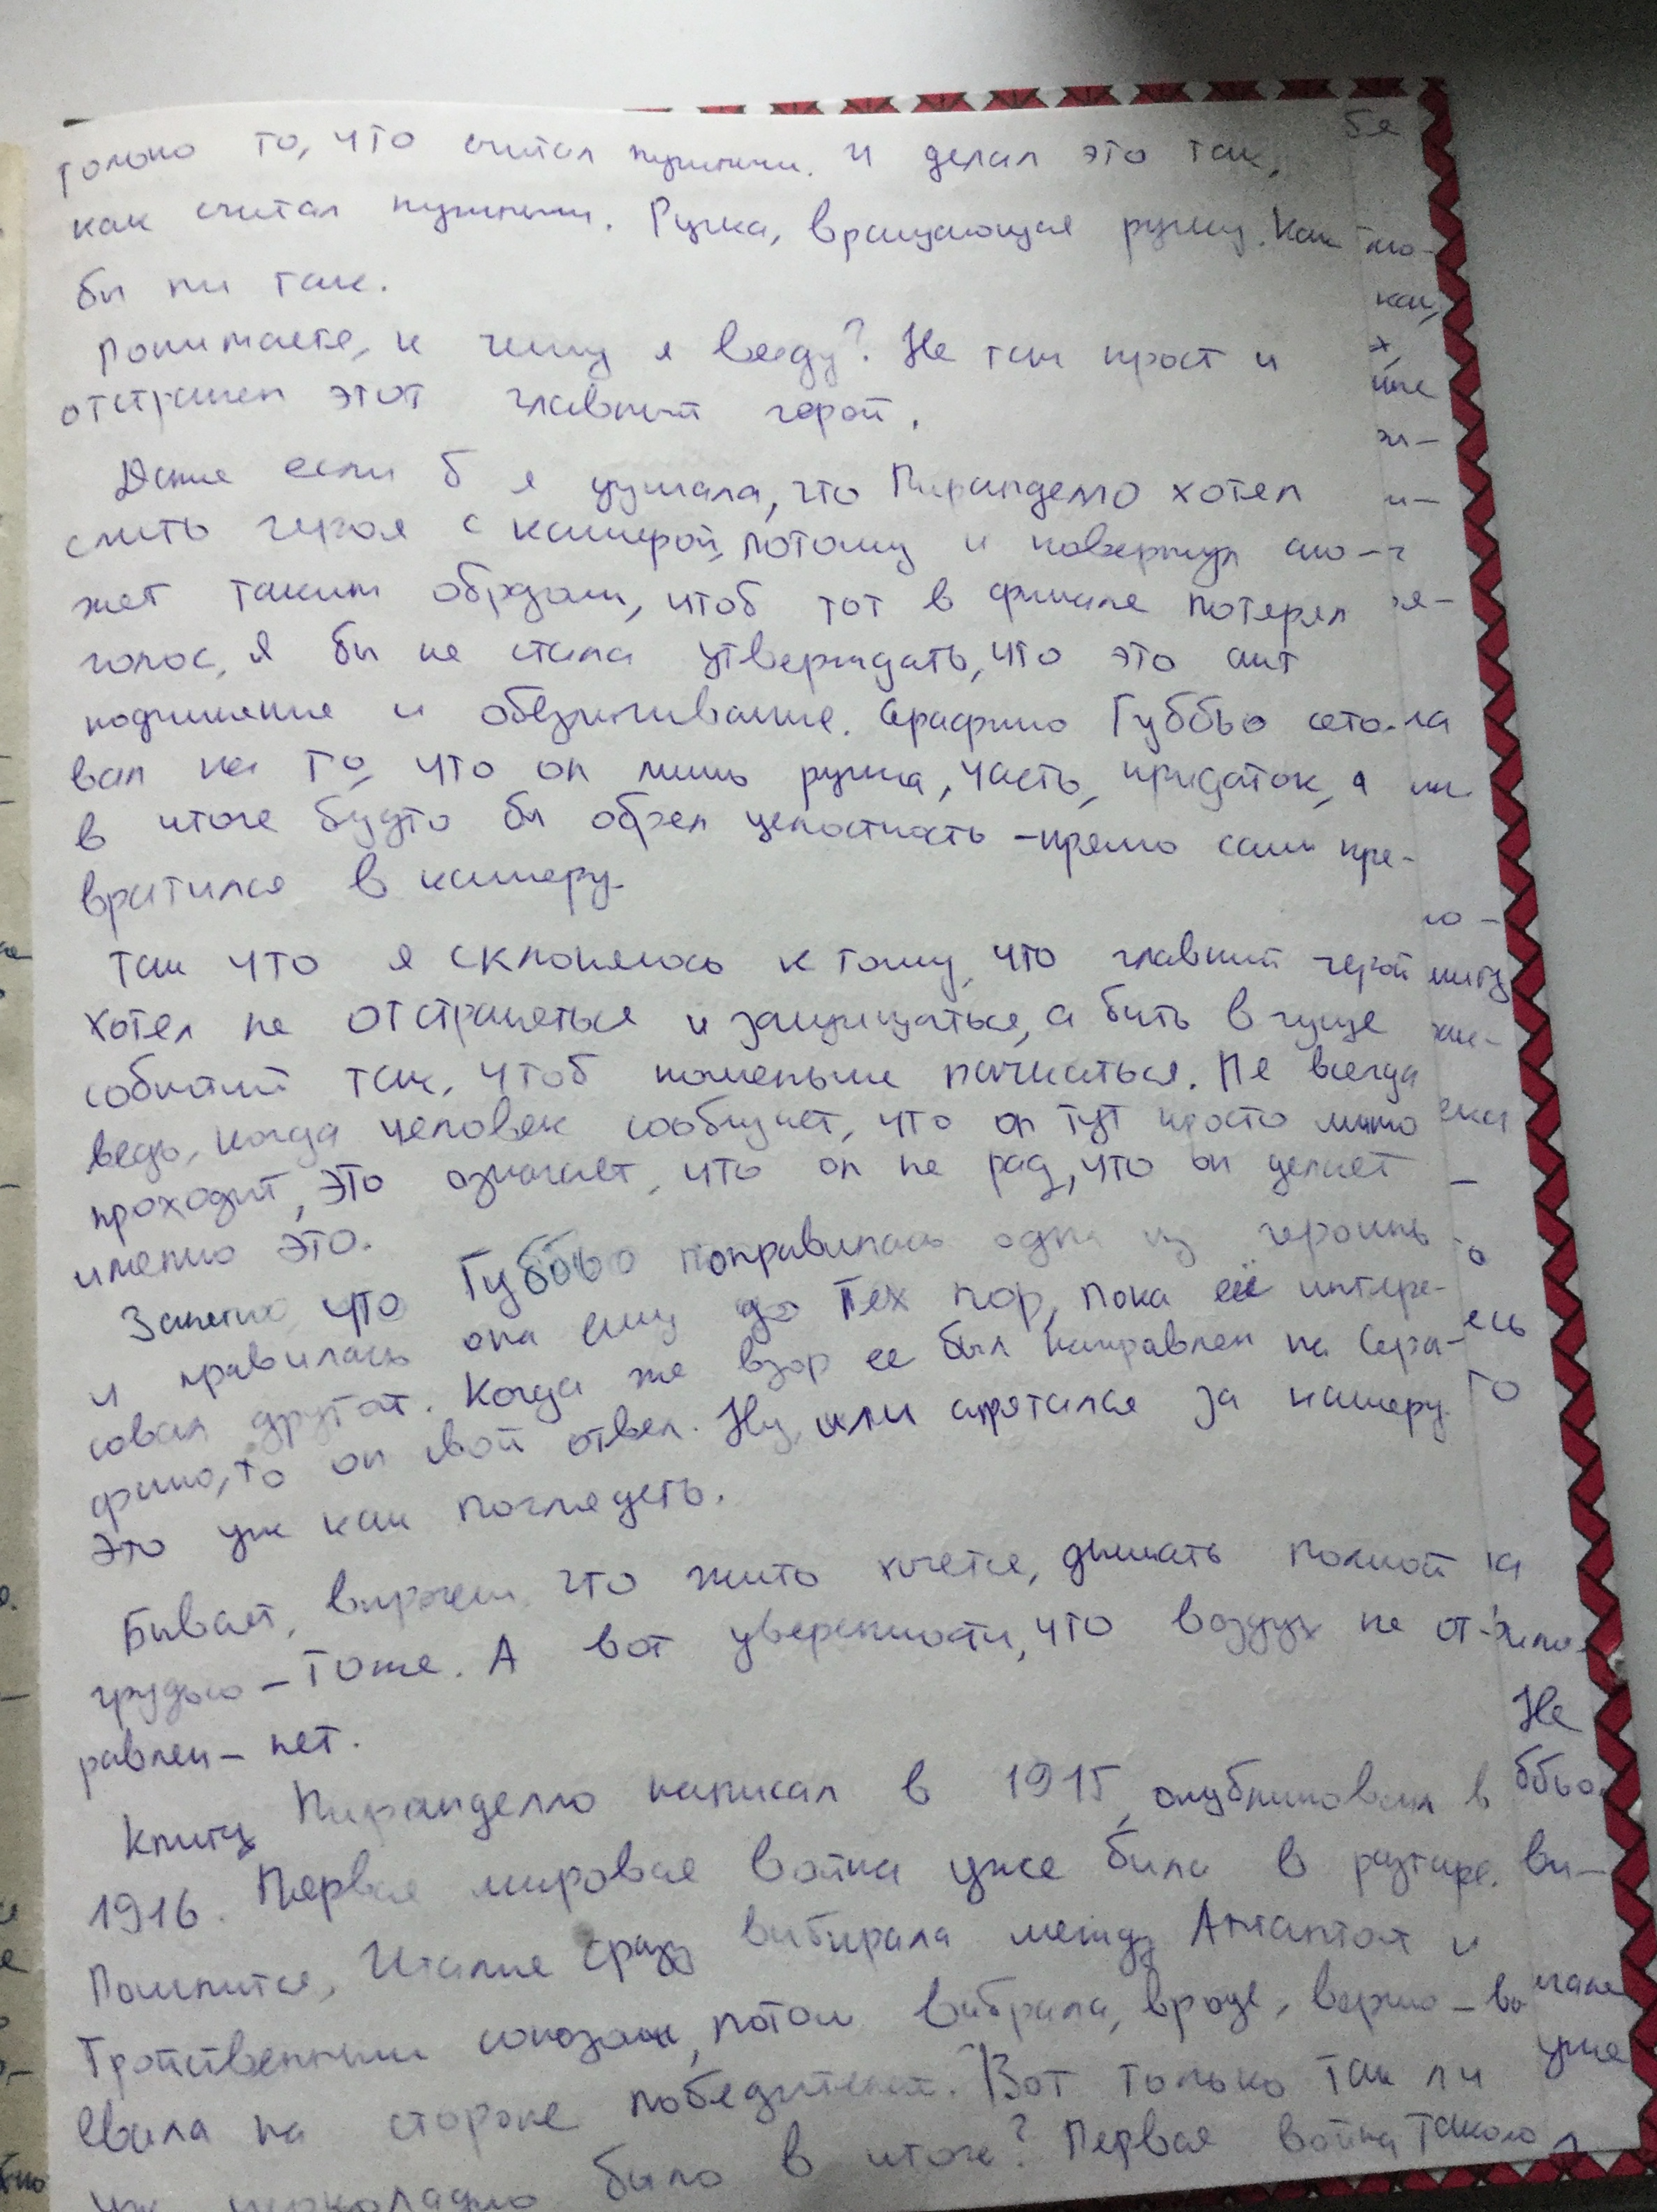 только то, что считал нужным. И делал это так,
как считал нужным. Ручка, вращающая ручку. Как
бы не так.
Понимаете, к чему я веду? Не так прост и
отстранен этот главный герой.
Даже если б я думала, что Пиранделло хотел
слить героя с камерой, потому и повернул сю-
жет таким образом, чтоб тот в финале потерял
голос, я бы не стала утверждать, что это акт
подчинения и обезличивание. Серафино Губбьо сето-
вал на то, что он лишь ручка, часть, придаток, а
в итоге будто бы обрел целостность - прямо сам пре-
вратился в камеру.
Так что я склоняюсь к тому, что главный герой
хотел не отстраняться и защищаться, а быть в гуще
событий так, чтоб поменьше пачкаться. Не всегда
ведь, когда человек сообщает, что он тут просто мимо
проходит, это означает, что он не рад, что он делает
именно это.
Занятно, что Губбьо понравилась одна из героинь
и нравилась она ему до тех пор, пока её интере-
совал другой. Когда же взор ее был направлен на Сера-
фино, то он свой отвел. Ну, или спрятался за камеру.
Это уж как поглядеть.
Бывает, впрочем, что жить хочется, дышать полной
грудью - тоже. А вот уверенности, что воздух не от-
равлен - нет.
Книгу Пиранделло написал в 1915, опубликовал в
1916. Первая мировая война уже была в разгаре.
Помнится, Италия сразу выбирала между Антантой и
Тройственным союзом, потом выбрала, вроде, верно - во
евала на стороне победителей. Вот только так ли
уж шоколадно было в итоге? Первая война такого